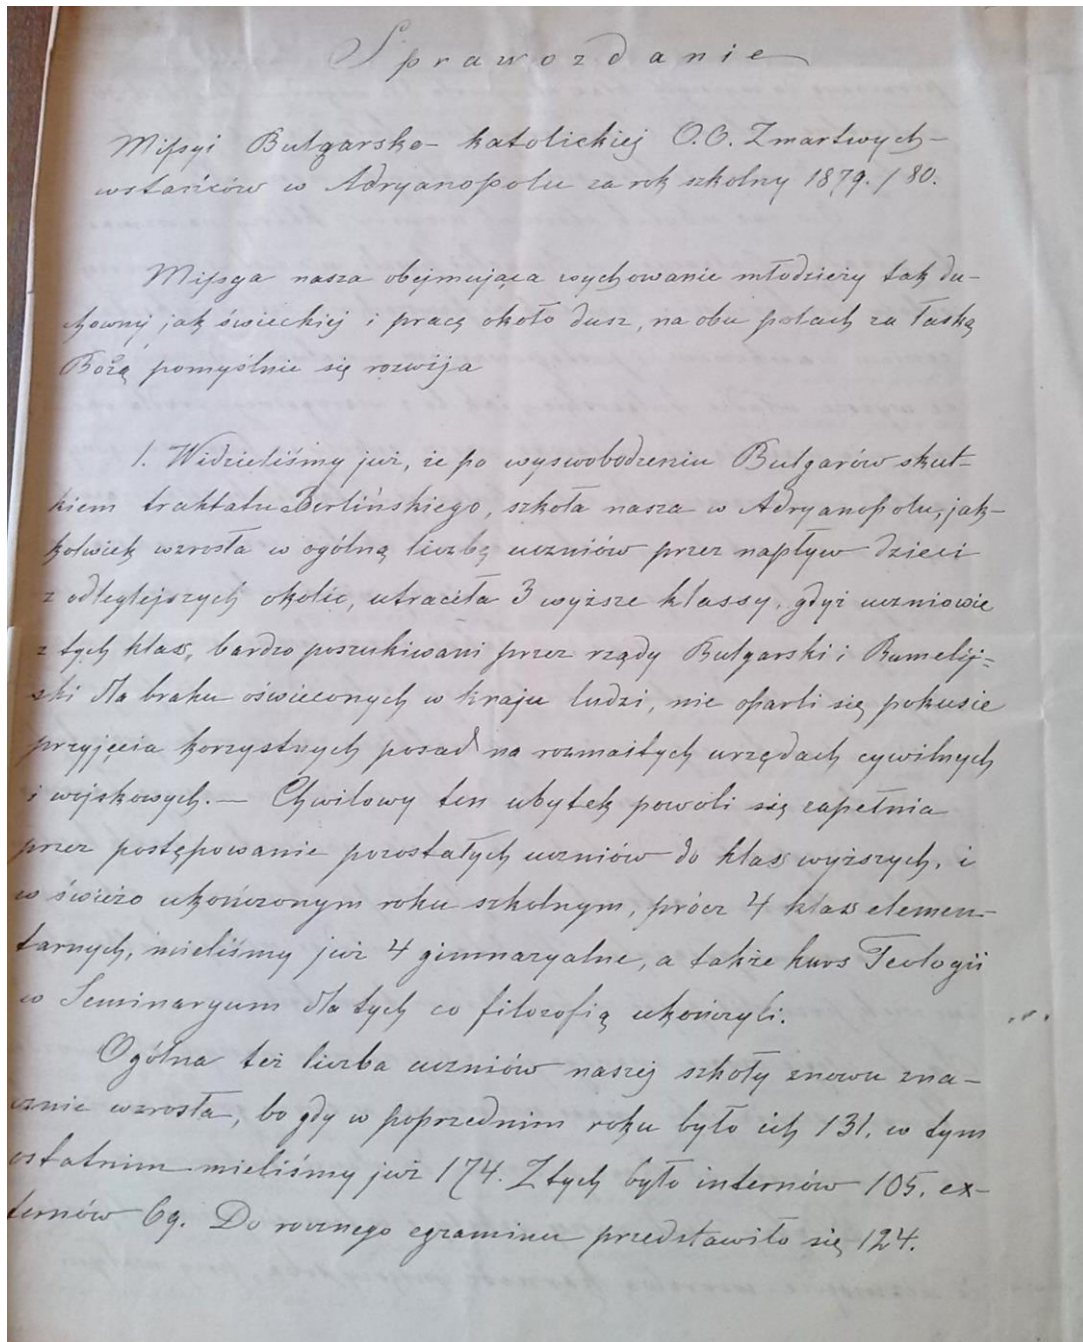 Sprawozdanie
Missyi Bulgarsko-katolickiej O.O. Zmartwych-
wstańców w Adryanopolu za rok szkolny 1879./80.
Missya nasza obejmująca wychowanie młodzieży tak du-
chownej jak świeckiej i pracę około dusz, na obu polach za łaską
Bożą pomyślnie się rozwija
1. Widzieliśmy już, że po wyswobodzeniu Bulgarów skut-
kiem traktatu Berlińskiego, szkoła nasza w Adryanopolu, jak-
kolwiek wzrosła w ogólną liczbę uczniów przez napływ dzieci
z odleglejszych okolic, utraciła 3 wyższe klassy, gdyż uczniowie
z tych klas, bardzo poszukiwani przez rządy Bulgarski i Rumelij-
ski dla braku oświeconych w kraju ludzi, nie oparli się pokusie
przyjęcia korzystnych posad na rozmaitych urzędach cywilnych
i wojskowych. — Chwilowy ten ubytek powoli się zapełnia
przez postępowanie pozostałych uczniów do klas wyższych, i
w świeżo ukończonym roku szkolnym, prócz 4 klas elemen-
tarnych, mieliśmy już 4 gimnazyalne, a także kurs Teologii
w Seminaryum dla tych co filozofią ukończyli.
Ogólna też liczba uczniów naszej szkoły znowu zna-
cznie wzrosła, bo gdy w poprzednim roku było ich 131. w tym
ostatnim mieliśmy już 174. Z tych było internów 105. ex-
ternów 69. Do rocznego egzaminu przedstawiło się 124.